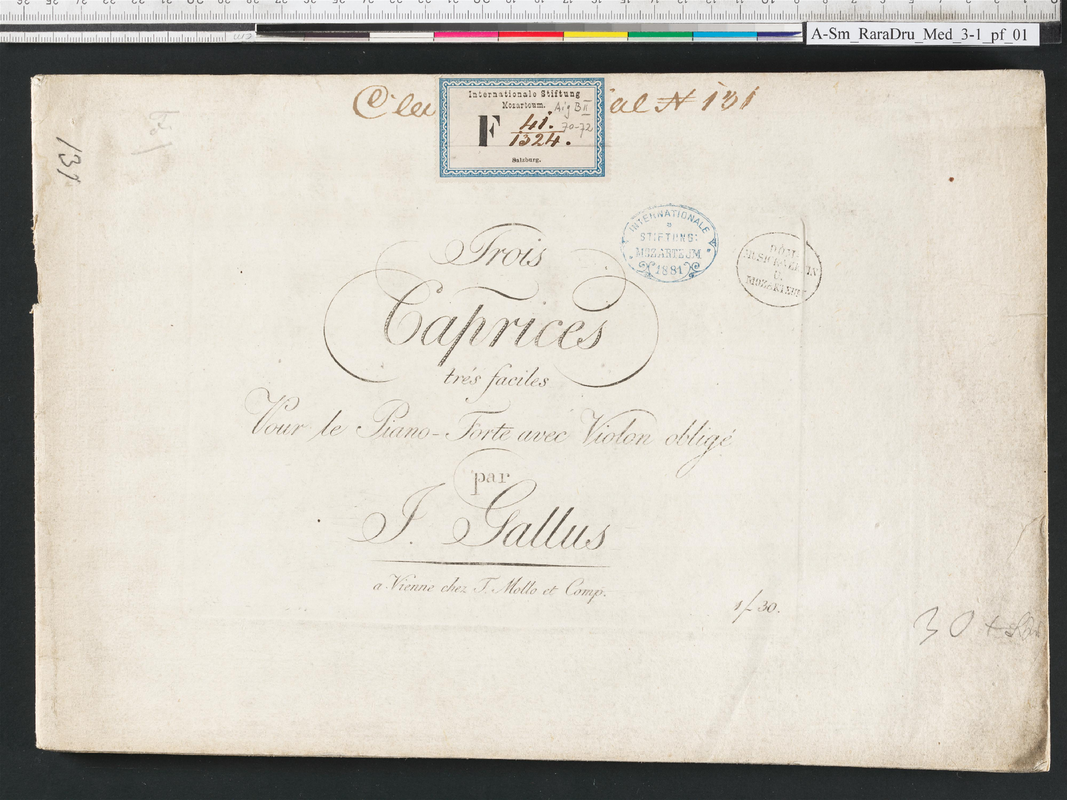 A-Sm_RaraDru_Med_3-1_pf_01
№ 131
Internationale Stiftung
Mozarteum.
Aig B II
70-72
F 41.
1324.
Salzburg.
131
INTERNATIONALE
STIFTUNG:
MOZARTEUM
1881
DOM-
MUSIKVEREIN
U.
MOZARTEUM
Trois
Caprices
trés faciles
Pour le Piano-Forte avec Violon obligé
par
J. Gallus
a Vienne chez T. Mollo et Comp.
1f 30.
30